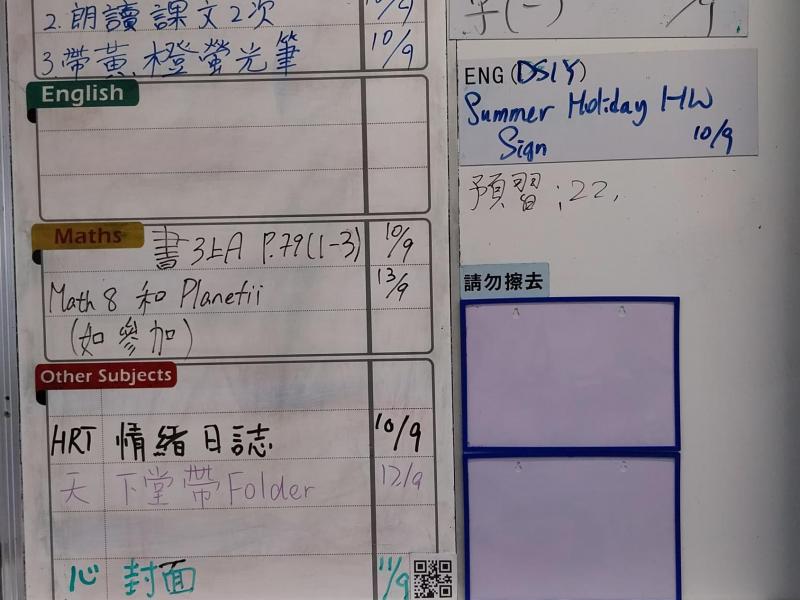 2. 朗讀課文2次 10/9
3. 帶黃, 橙螢光筆 10/9
English
Maths
書3上A P.79(1-3) 10/9
Math 8 和 Planetii 13/9
(如參加)
Other Subjects
HRT 情緒日誌 10/9
天 下堂帶Folder 12/9
心 封面 11/9
字(一) /9
ENG (DSLY)
Summer Holiday HW
Sign 10/9
預習:22,
請勿擦去